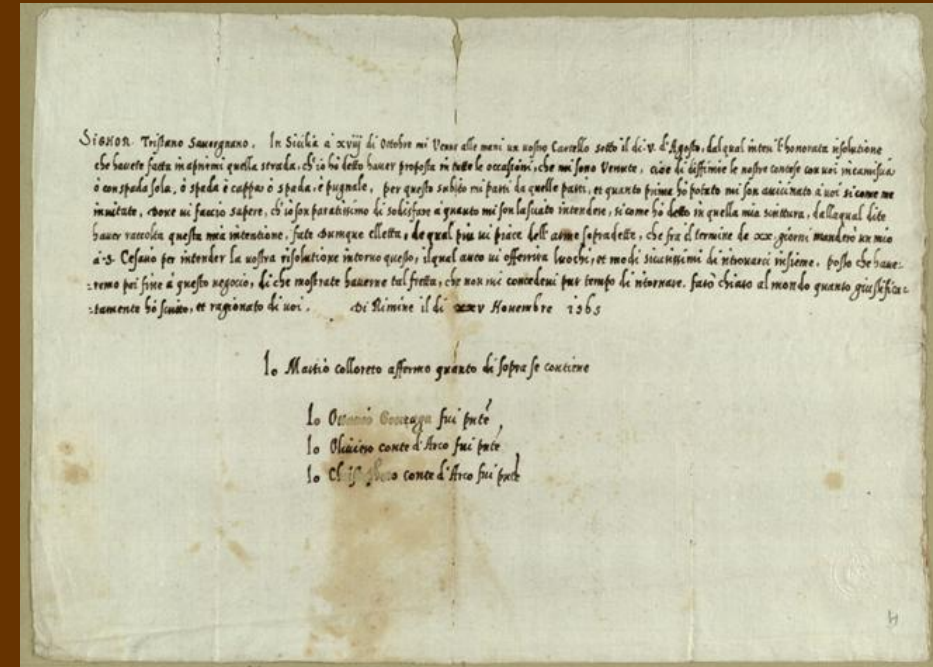 SIGNOR. Tristano Savorgnano. In Sicilia a xviij di Ottobre mi Venne alle mani un vostro Cartello sotto il di .v. d'Agosto, dal qual intesi l'honorata risolutione
che havete fatta in aprirmi quella strada, ch'io ho detto haver proposta in tutte le occasioni, che mi sono Venute, cioè di diffinire le nostre contese con voi in camisia
ò con spada sola, ò spada è cappa ò spada, è pugnale, per questo subito mi parti da quelle parti, et quanto prima ho potuto mi son avicinato à voi si come me
invitate, dove vi faccio sapere, ch'io son paratissimo di sodisfare a quanto mi son lasciato intendere, si come hò detto in quella mia scrittura, dalla qual dite
haver raccolta questa mia intentione, fate dumque elletta, de qual piu vi piace dell'arme sopradette, che fra il termine de xx. giorni manderò un mio
à S. Cesario per intender la vostra risolutione intorno questo, il qual anco vi offerira luochi, et modi sicurissimi di ritrovarci insieme. posto che have=
=remo poi fine a questo negocio, di che mostrate haverne tal fretta, che non mi concedevi pur tempo di ritornare. farò chiaro al mondo quanto giustifica=
=tamente hò scritto, et ragionato di voi. Di Rimine il di xxv Novembre 1565
Io Martio colloreto affermo quanto di sopra se contiene
Io Gonzaga fui pnte
Io Oliviero conte d'Arco fui pnte
Io conte d'Arco fui pnte